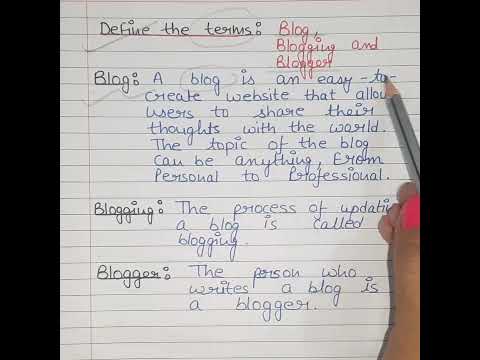 Define the terms: Blog,
Blogging and
Blogger
Blog: A blog is an easy-to-
create website that allow
users to share their
thoughts with the world.
The topic of the blog
can be anything, from
Personal to Professional.
Blogging: The process of updatin
a blog is called
blogging.
Blogger: The person who
writes a blog is
a blogger.